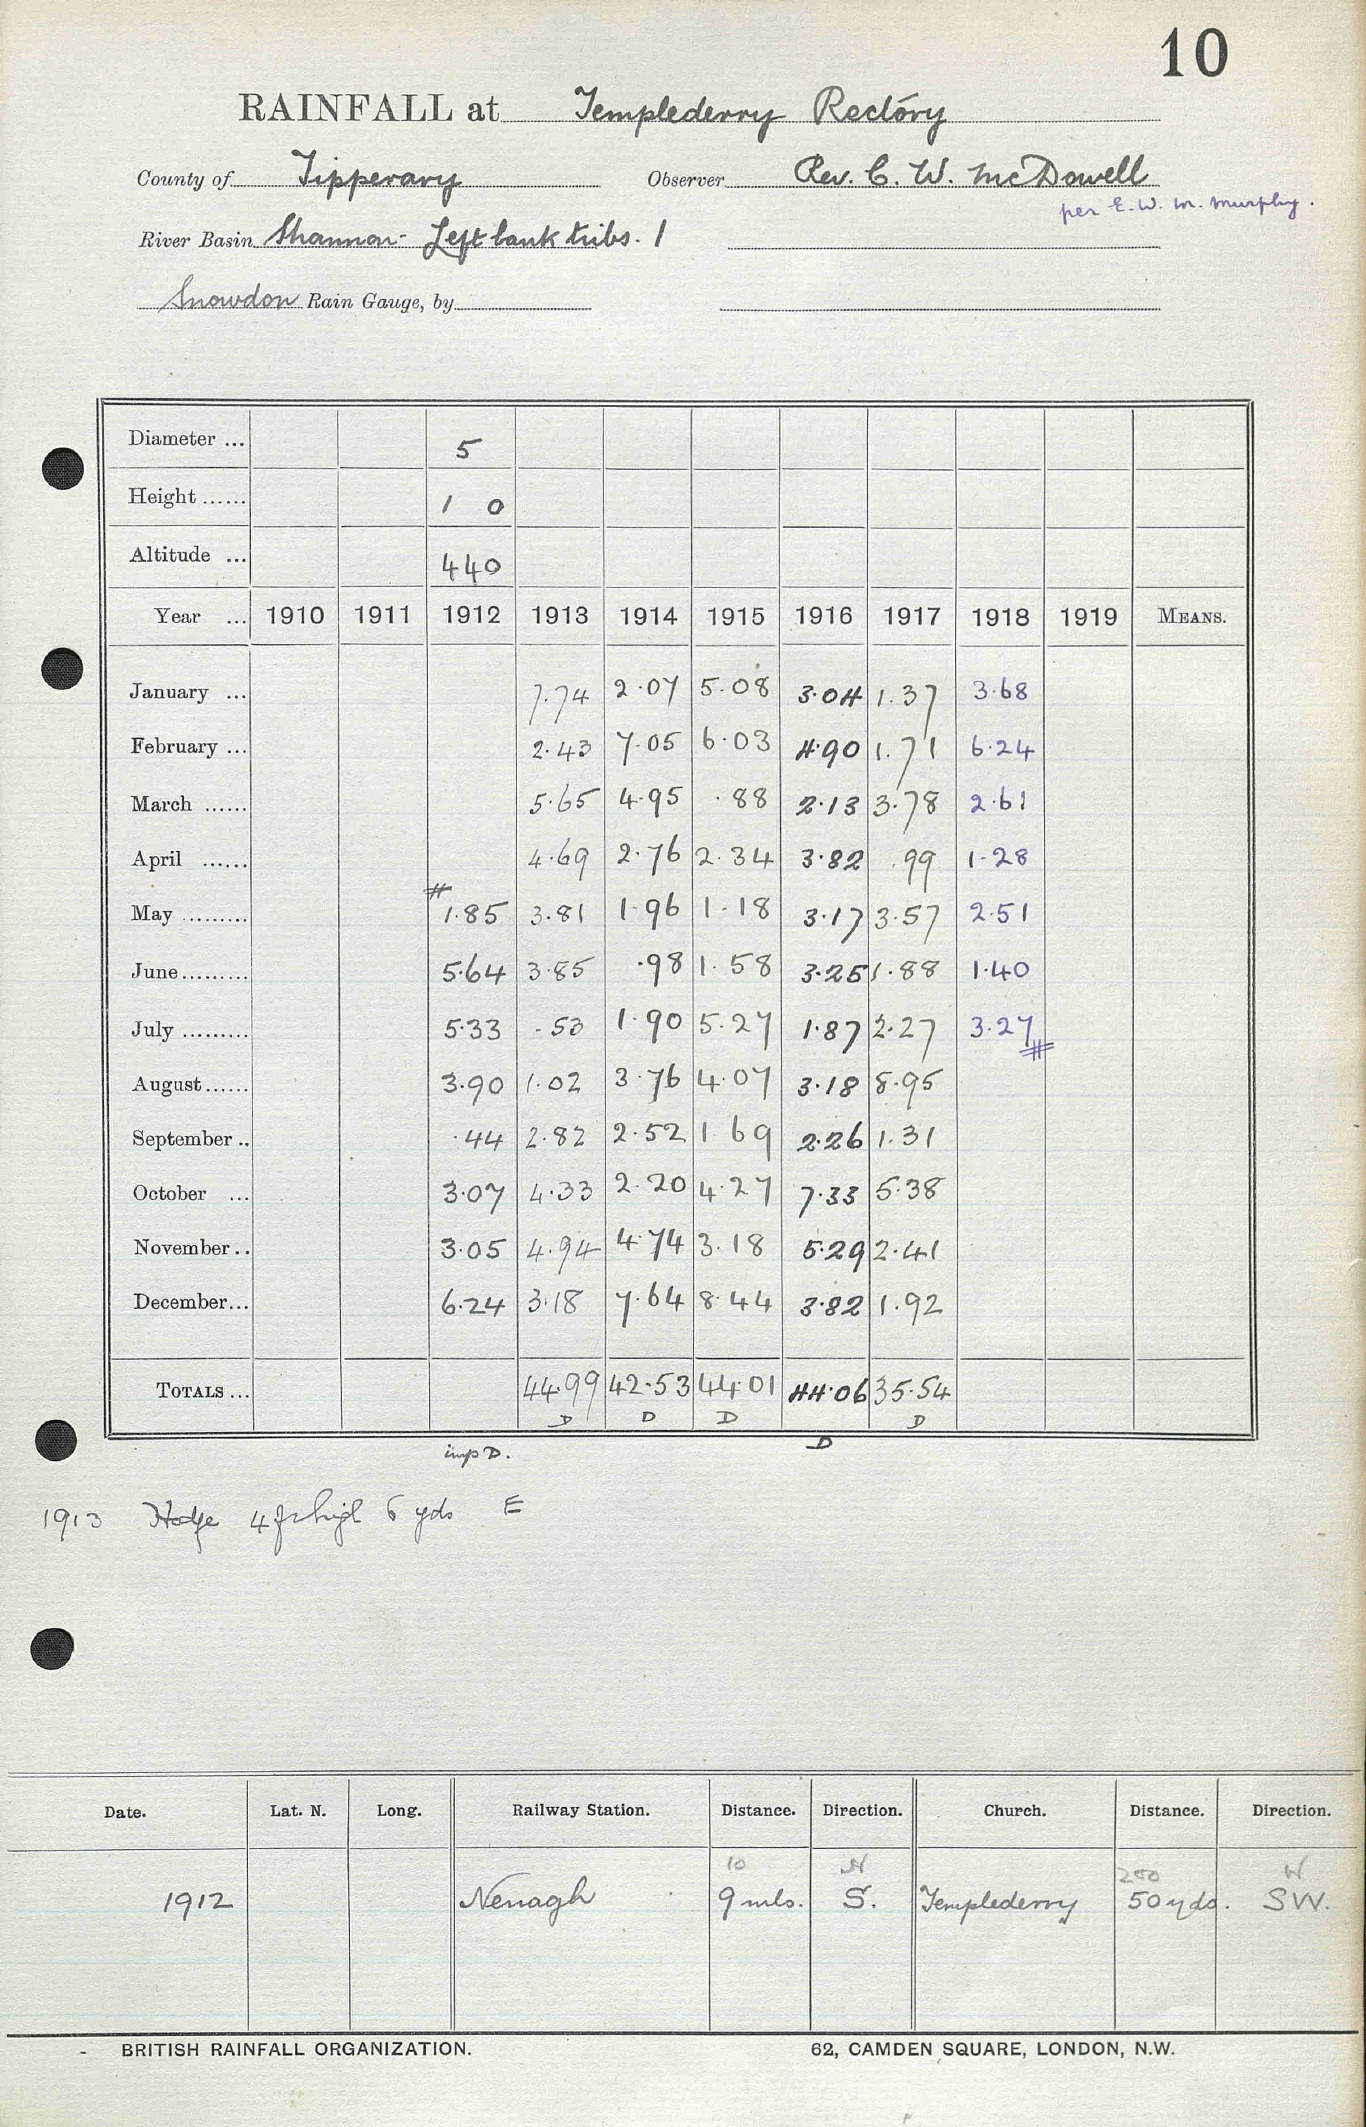 10
RAINFALL at Templederry Rectory
County of Tipperary Observer Rev. C. W. McDowell
per E. W. M. Murphy.
River Basin Shannon - Left bank tribs. 1
Snowdon Rain Gauge, by
Diameter ... 5
Height ...... 1 0
Altitude ... 440
Year ... 1910 1911 1912 1913 1914 1915 1916 1917 1918 1919 MEANS.
January ... 7.74 2.07 5.08 3.04 1.37 3.68
February ... 2.43 7.05 6.03 4.90 1.71 6.24
March ...... 5.65 4.95 .88 2.13 3.78 2.61
April ...... 4.69 2.76 2.34 3.82 .99 1.28
May ......... # 1.85 3.81 1.96 1.18 3.17 3.57 2.51
June......... 5.64 3.85 .98 1.58 3.25 1.88 1.40
July ......... 5.33 .53 1.90 5.27 1.87 2.27 3.27 #
August...... 3.90 1.02 3.76 4.07 3.18 8.95
September .. .44 2.82 2.52 1.69 2.26 1.31
October ... 3.07 4.33 2.20 4.27 7.33 5.38
November .. 3.05 4.94 4.74 3.18 5.29 2.41
December... 6.24 3.18 7.64 8.44 3.82 1.92
TOTALS ... 44.99 42.53 44.01 44.06 35.54
D D D D
imp D. D
1913 Hedge 4 ft high 6 yds E
Date. Lat. N. Long. Railway Station. Distance. Direction. Church. Distance. Direction.
10 N 200 W
1912 Nenagh 9 mls. S. Templederry 50 yds. SW.
- BRITISH RAINFALL ORGANIZATION. 62, CAMDEN SQUARE, LONDON, N.W.